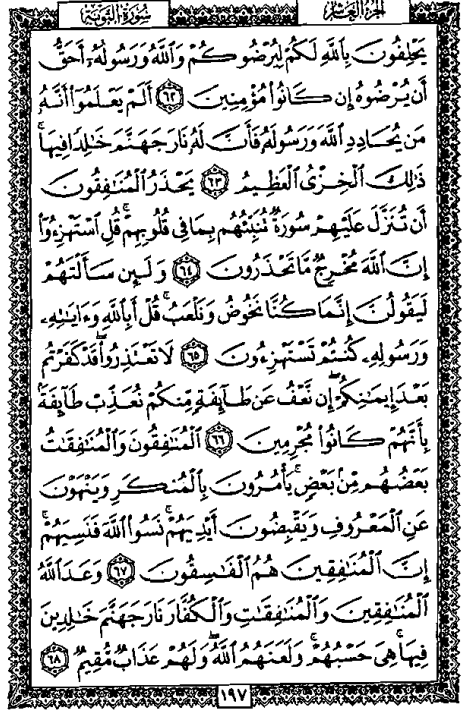 سُورَةُ التَّوْبَةِ الجزء العاشر
يَحْلِفُونَ بِٱللَّهِ لَكُمْ لِيُرْضُوكُمْ وَٱللَّهُ وَرَسُولُهُۥٓ أَحَقُّ
أَن يُرْضُوهُ إِن كَانُوا۟ مُؤْمِنِينَ ٦٢ أَلَمْ يَعْلَمُوٓا۟ أَنَّهُۥ
مَن يُحَادِدِ ٱللَّهَ وَرَسُولَهُۥ فَأَنَّ لَهُۥ نَارَ جَهَنَّمَ خَـٰلِدًا فِيهَا ۚ
ذَٰلِكَ ٱلْخِزْىُ ٱلْعَظِيمُ ٦٣ يَحْذَرُ ٱلْمُنَـٰفِقُونَ
أَن تُنَزَّلَ عَلَيْهِمْ سُورَةٌ تُنَبِّئُهُم بِمَا فِى قُلُوبِهِمْ ۚ قُلِ ٱسْتَهْزِءُوٓا۟
إِنَّ ٱللَّهَ مُخْرِجٌ مَّا تَحْذَرُونَ ٦٤ وَلَئِن سَأَلْتَهُمْ
لَيَقُولُنَّ إِنَّمَا كُنَّا نَخُوضُ وَنَلْعَبُ ۚ قُلْ أَبِٱللَّهِ وَءَايَـٰتِهِۦ
وَرَسُولِهِۦ كُنتُمْ تَسْتَهْزِءُونَ ٦٥ لَا تَعْتَذِرُوا۟ قَدْ كَفَرْتُم
بَعْدَ إِيمَـٰنِكُمْ ۚ إِن نَّعْفُ عَن طَآئِفَةٍ مِّنكُمْ نُعَذِّبْ طَآئِفَةًۢ
بِأَنَّهُمْ كَانُوا۟ مُجْرِمِينَ ٦٦ ٱلْمُنَـٰفِقُونَ وَٱلْمُنَـٰفِقَـٰتُ
بَعْضُهُم مِّنۢ بَعْضٍ ۚ يَأْمُرُونَ بِٱلْمُنكَرِ وَيَنْهَوْنَ
عَنِ ٱلْمَعْرُوفِ وَيَقْبِضُونَ أَيْدِيَهُمْ ۚ نَسُوا۟ ٱللَّهَ فَنَسِيَهُمْ ۗ
إِنَّ ٱلْمُنَـٰفِقِينَ هُمُ ٱلْفَـٰسِقُونَ ٦٧ وَعَدَ ٱللَّهُ
ٱلْمُنَـٰفِقِينَ وَٱلْمُنَـٰفِقَـٰتِ وَٱلْكُفَّارَ نَارَ جَهَنَّمَ خَـٰلِدِينَ
فِيهَا ۚ هِىَ حَسْبُهُمْ ۚ وَلَعَنَهُمُ ٱللَّهُ ۖ وَلَهُمْ عَذَابٌ مُّقِيمٌ ٦٨
١٩٧